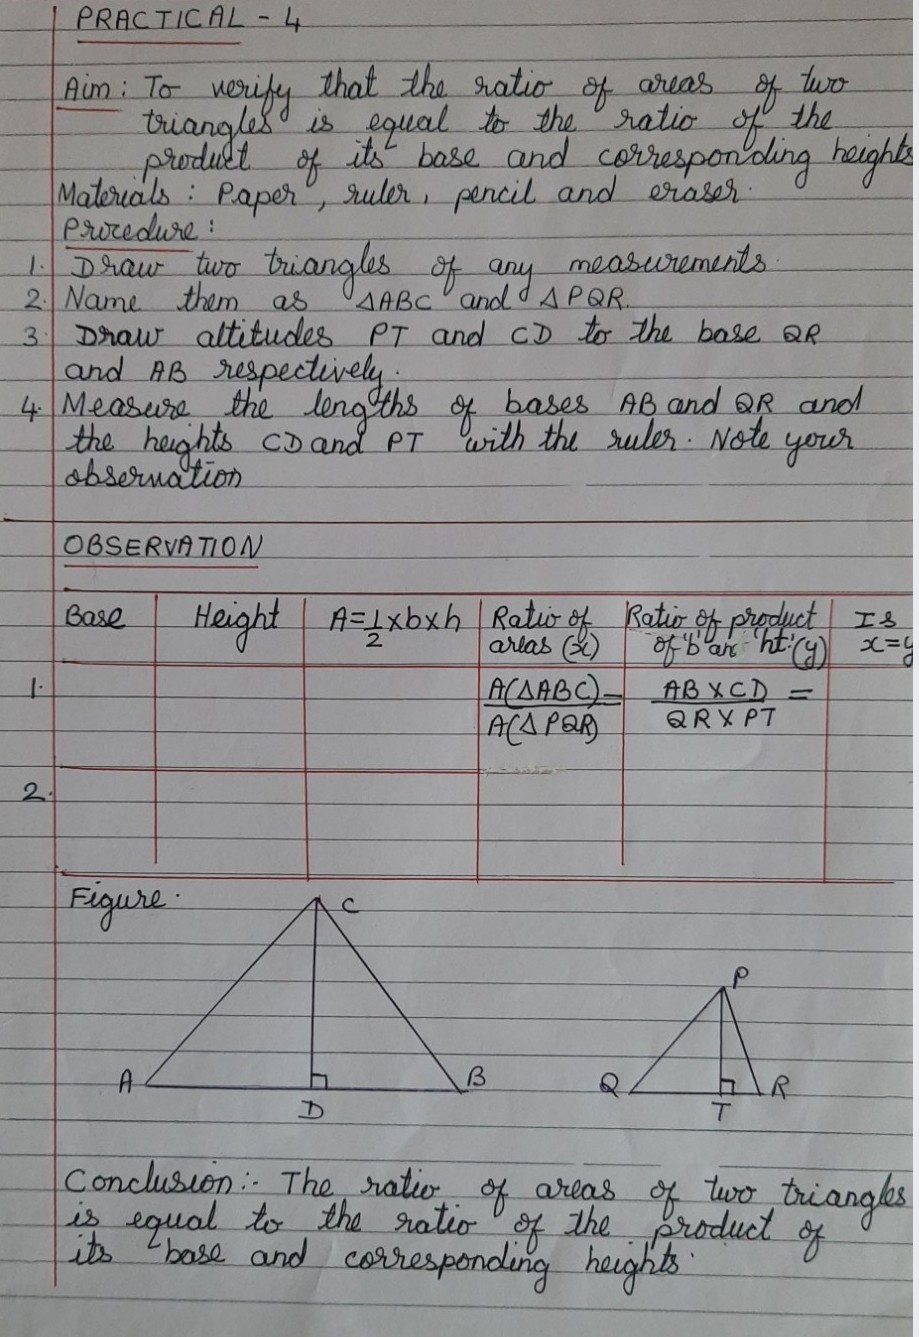 PRACTICAL - 4
Aim : To verify that the ratio of areas of two
triangles is equal to the ratio of the
product of its base and corresponding heights
Materials : Paper, ruler, pencil and eraser.
Procedure :
1. Draw two triangles of any measurements.
2. Name them as ΔABC and ΔPQR.
3. Draw altitudes PT and CD to the base QR
and AB respectively.
4. Measure the lengths of bases AB and QR and
the heights CD and PT with the ruler. Note your
observation
OBSERVATION
Base Height A=1/2×b×h Ratio of areas (x) Ratio of product of 'b' an 'ht.'(y) Is x=y
1. A(ΔABC)/A(ΔPQR) = AB×CD/QR×PT =
2.
Figure.
C
P
A B Q R
D T
Conclusion :- The ratio of areas of two triangles
is equal to the ratio of the product of
its base and corresponding heights.